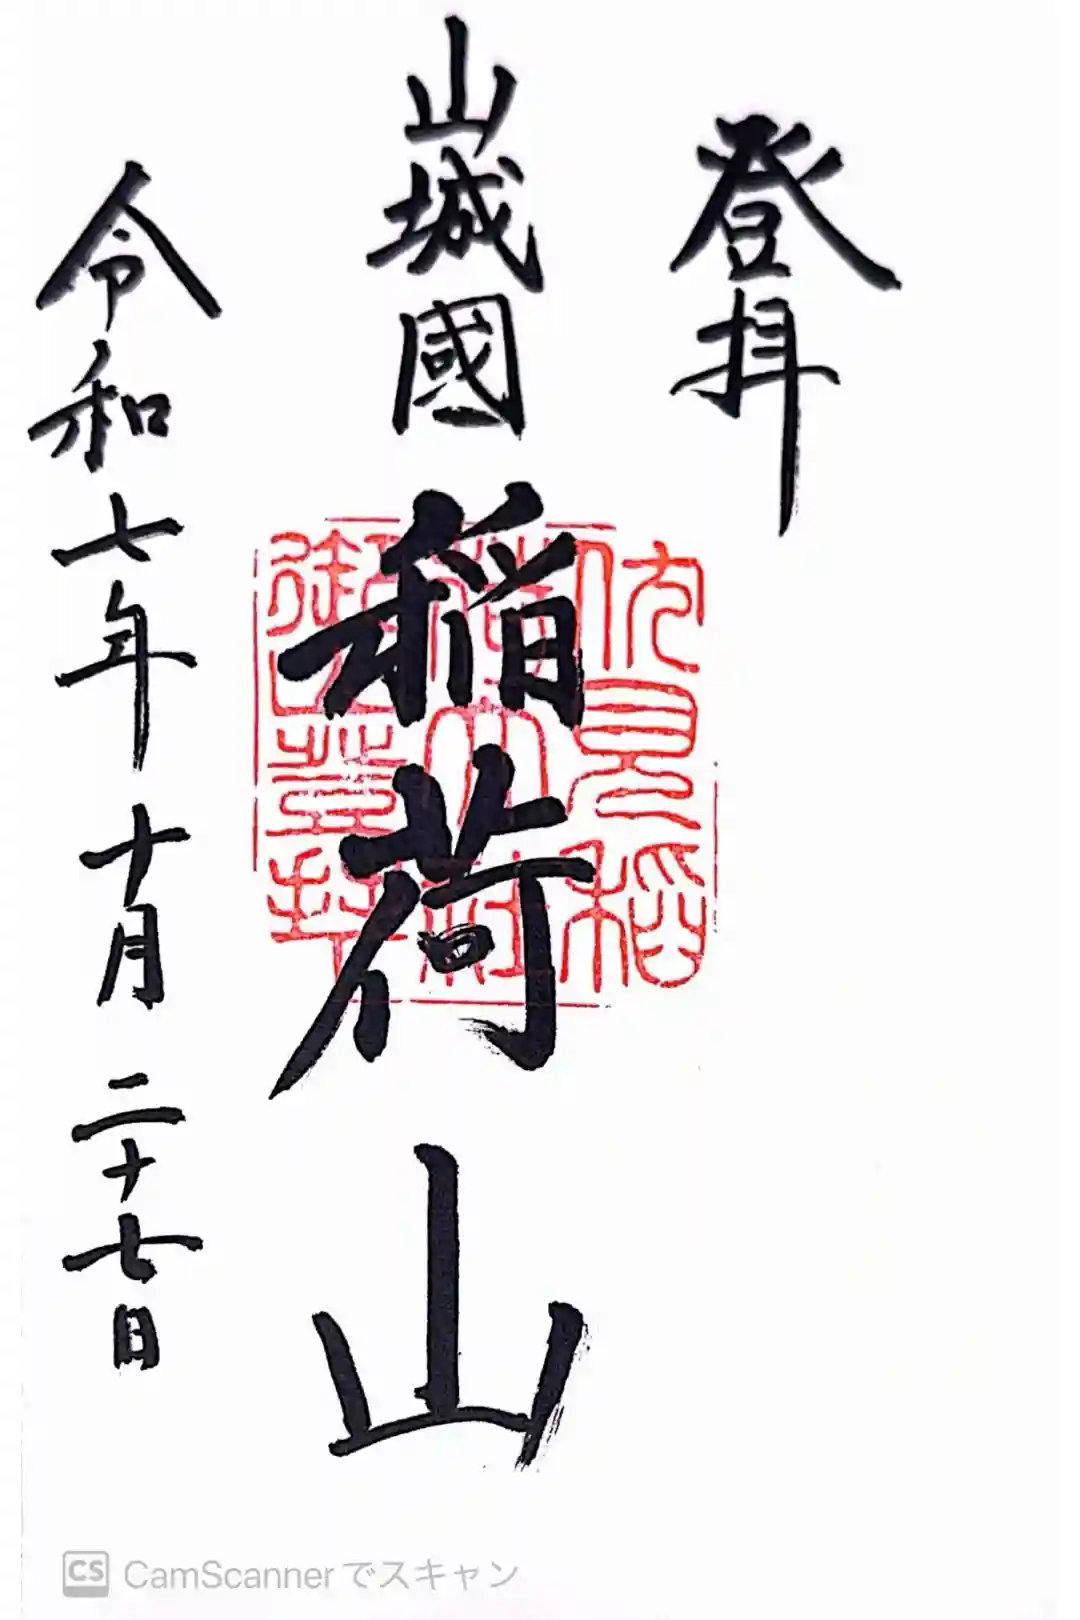 登拝
山城國
稲荷山
伏見稲
荷大社
御山登拝
令和七年十月二十七日
CS CamScannerでスキャン